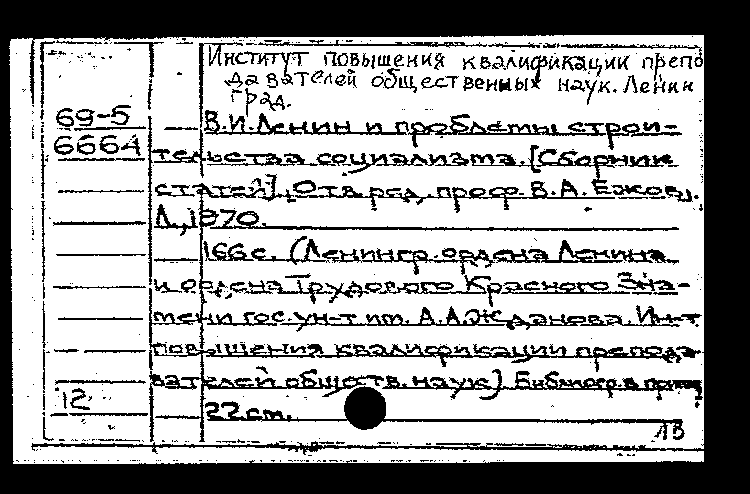 Институт повышения квалификации препо
давателей общественных наук. Ленин
град.
69-5
В.И.Ленин и проблемы строи-
6664
тельства социализма. [Сборник
статей]. Отв. ред. проф. В.А. Ежов.
Л., 1970.
166 с. (Ленингр. ордена Ленина
и ордена Трудового Красного Зна-
мени гос. ун-т им. А.А.Жданова. Ин-т
повышения квалификации препода-
вателей обществ. наук) Библиогр. в прим.
12
22 см.